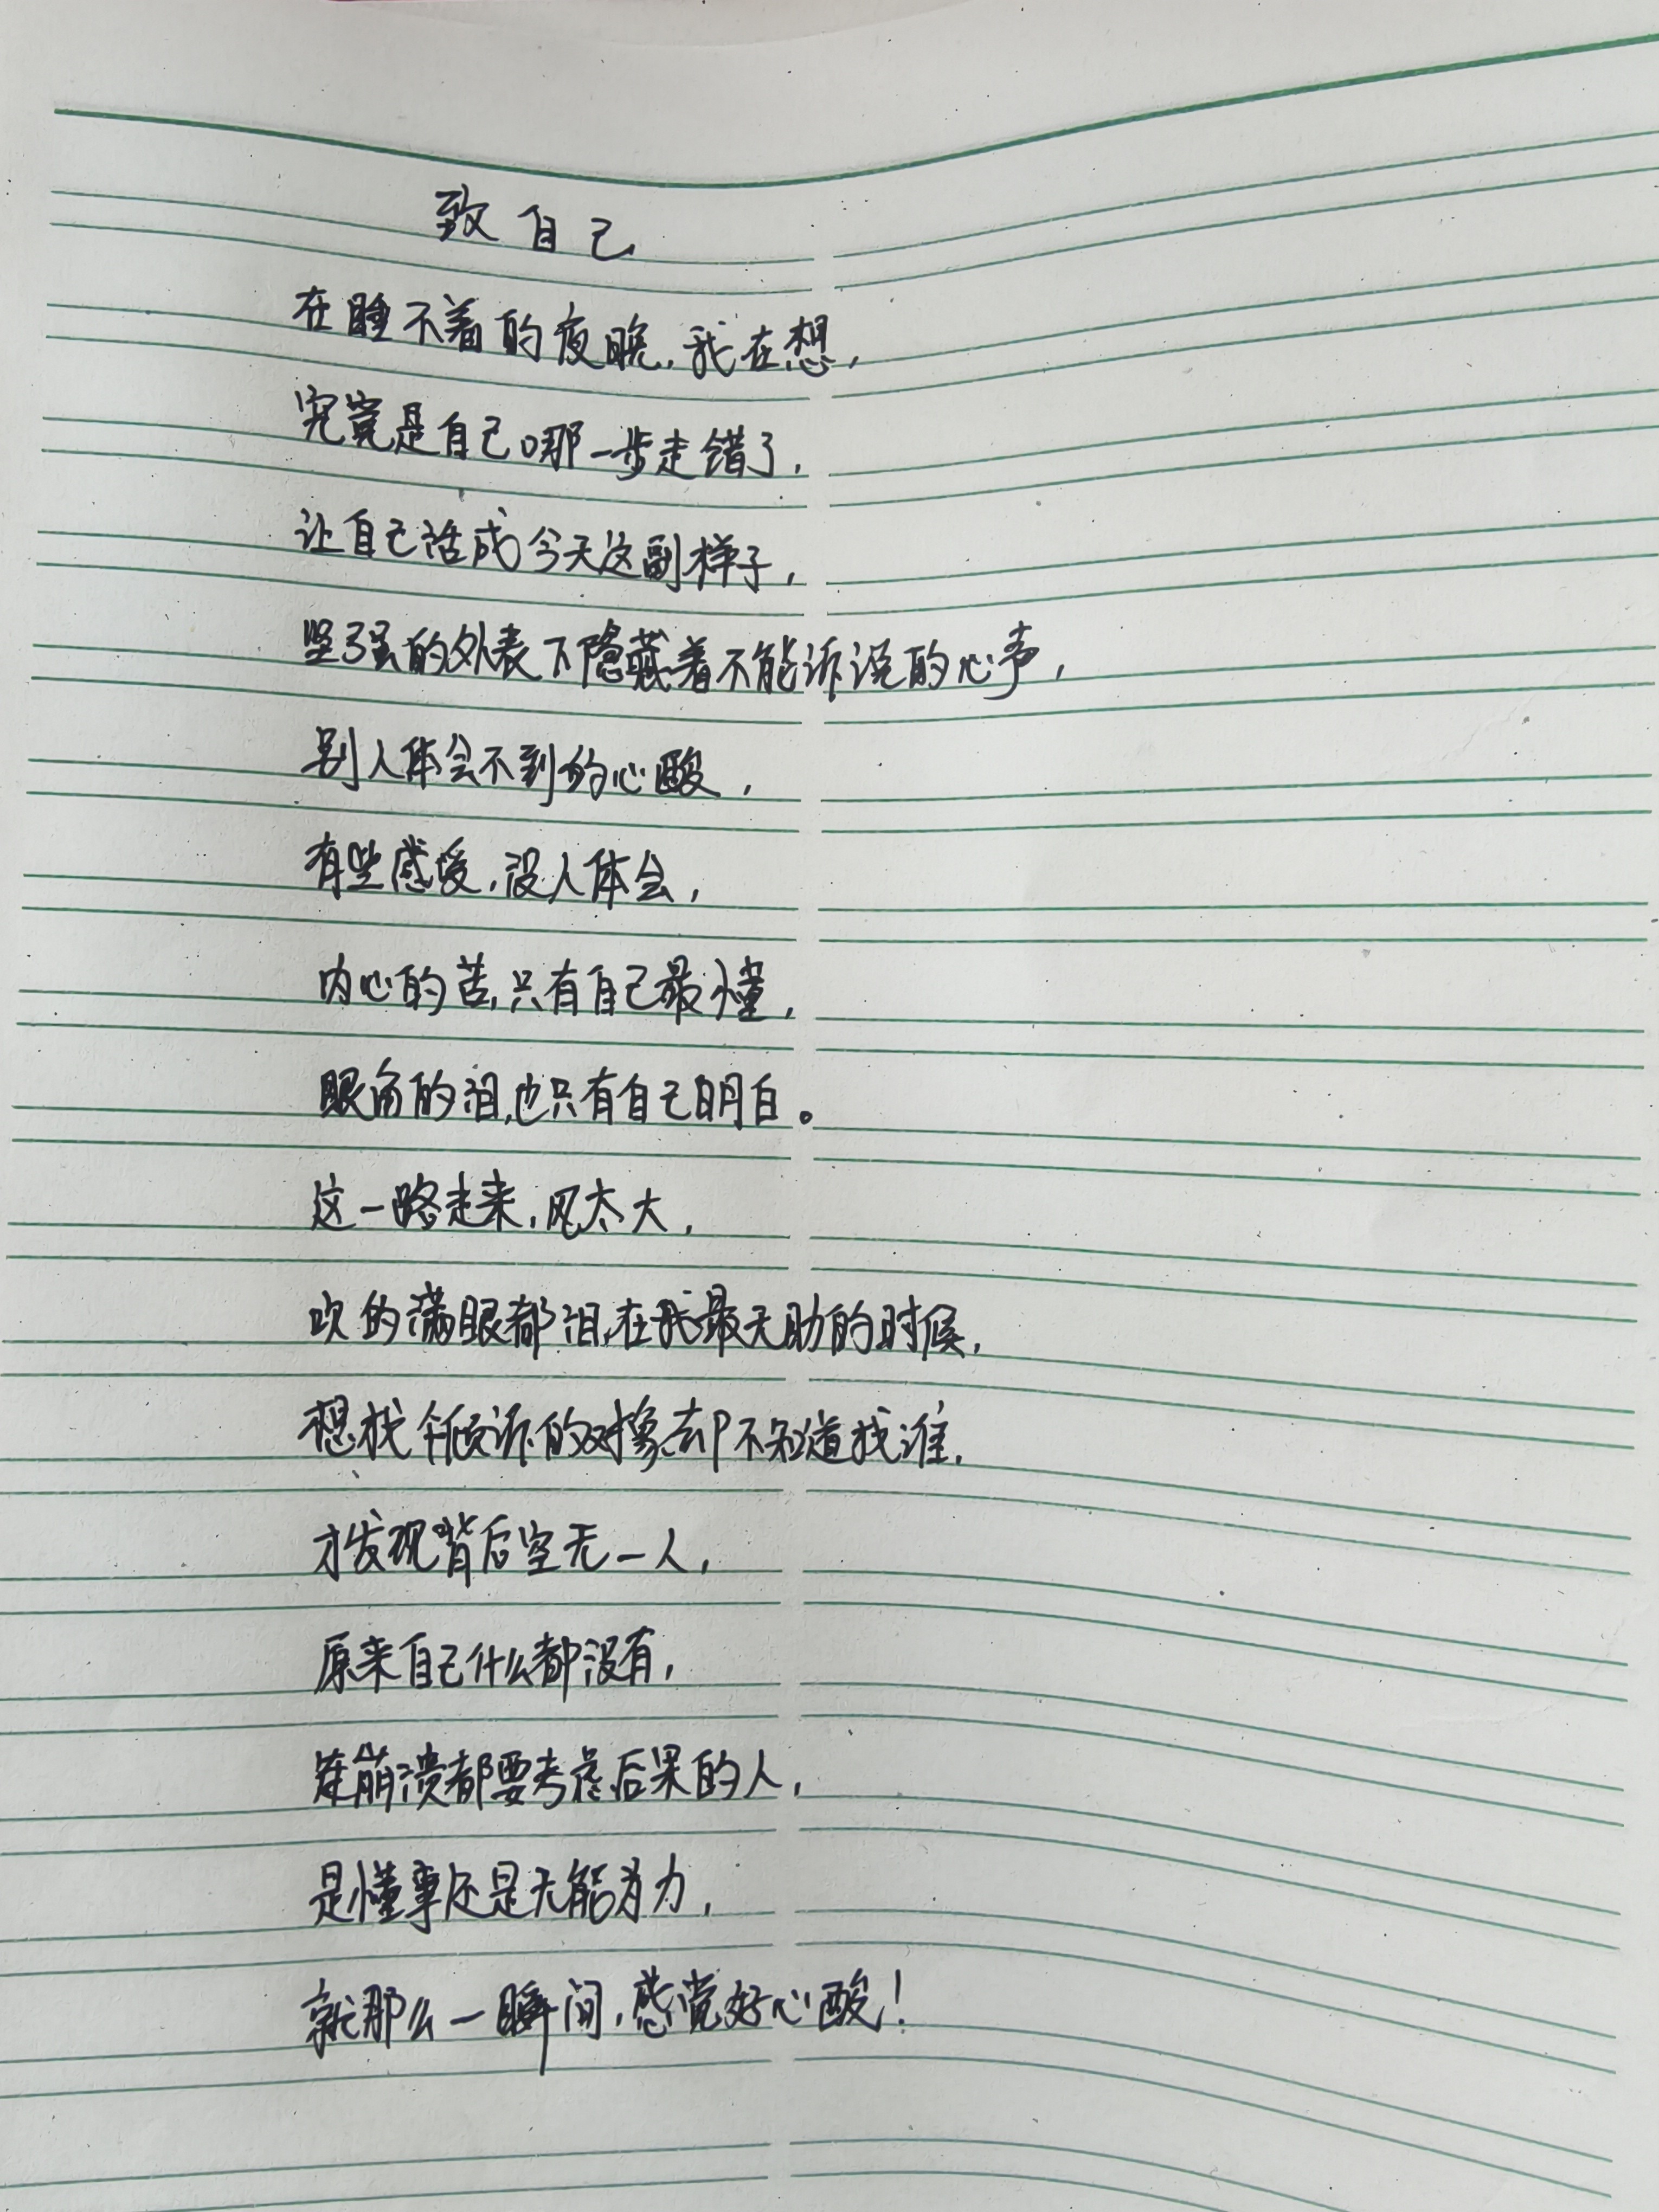 致自己
在睡不着的夜晚，我在想，
究竟是自己哪一步走错了，
让自己活成今天这副样子，
坚强的外表下隐藏着不能诉说的心声，
别人体会不到的心酸，
有些感受，没人体会，
内心的苦，只有自己最懂，
眼角的泪，也只有自己明白。
这一路走来，风太大，
吹的满眼都泪，在我最无助的时候，
想找个倾诉的对象却不知道找谁，
才发现背后空无一人，
原来自己什么都没有，
连崩溃都要考虑后果的人，
是懂事还是无能为力，
就那么一瞬间，感觉好心酸！